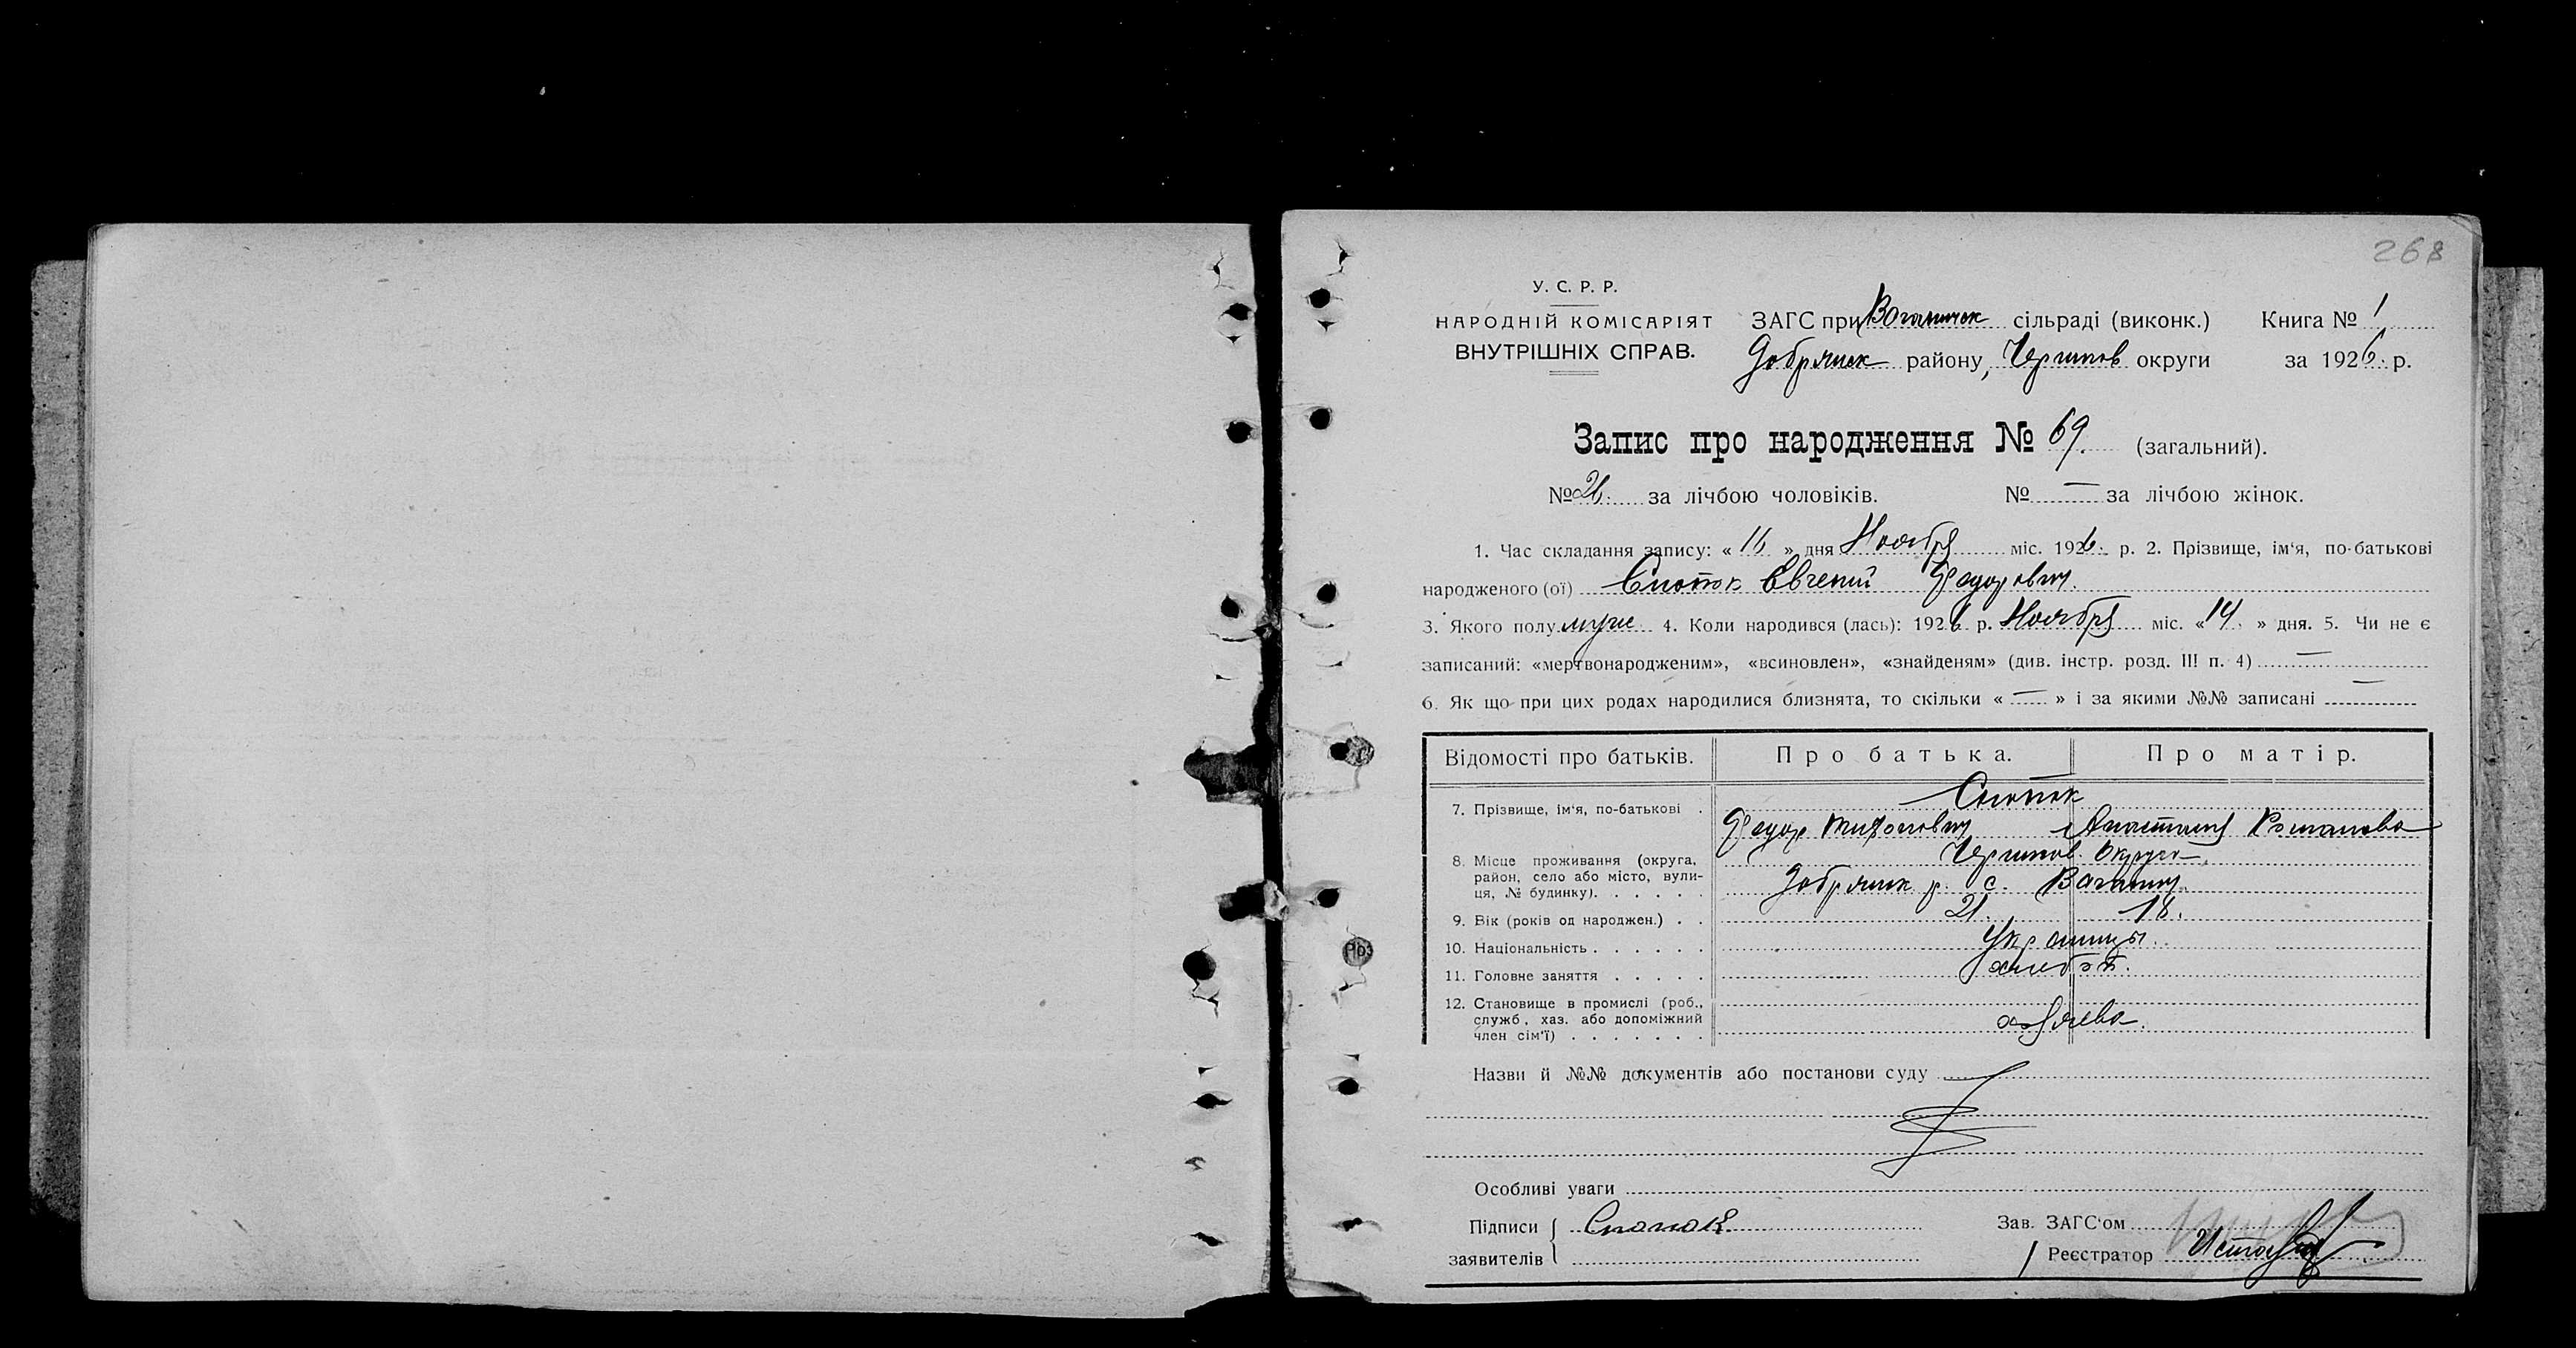 268
У. С. Р. Р.
НАРОДНІЙ КОМІСАРІЯТ
ВНУТРІШНІХ СПРАВ.
ЗАГС при Ваганичск сільраді (виконк.) Книга № 1
Добрянск району, Чернигов округи за 1926. р.
Запис про народження № 69. (загальний).
№ за лічбою чоловіків. № — за лічбою жінок.
1. Час складання запису: « 16 » дня Ноября міс. 1926. р. 2. Прізвище, ім‘я, по-батькові
народженого (ої) Евгений Федорович.
3. Якого полу муж. 4. Коли народився (лась): 1926 р. Ноября міс. «14» дня. 5. Чи не є
записаний: «мертвонародженим», «всиновлен», «знайденям» (див. інстр. розд. III п. 4) —
6. Як що при цих родах народилися близнята, то скільки « — » і за якими №№ записані —
Відомості про батьків. Про батька. Про матір.
7. Прізвище, ім‘я, по-батькові .
Федор Анастасия Романова
8. Місце проживання (округа, район, село або місто, вулиця, № будинку). . . . . . Чернигов. Округа
Добрянск р. с. Ваганичи
9. Вік (років од народжен.) . . 21. 18.
10. Національність . . . . . . Украинцы.
11. Головне заняття . . . . . хлебоп.
12. Становище в промислі (роб., служб., хаз. або допоміжний член сім‘ї) . . . . . . . хозяева.
Назви й №№ документів або постанови суду
Особливі уваги
Підписи
заявителів
Зав. ЗАГС‘ом
Реєстратор